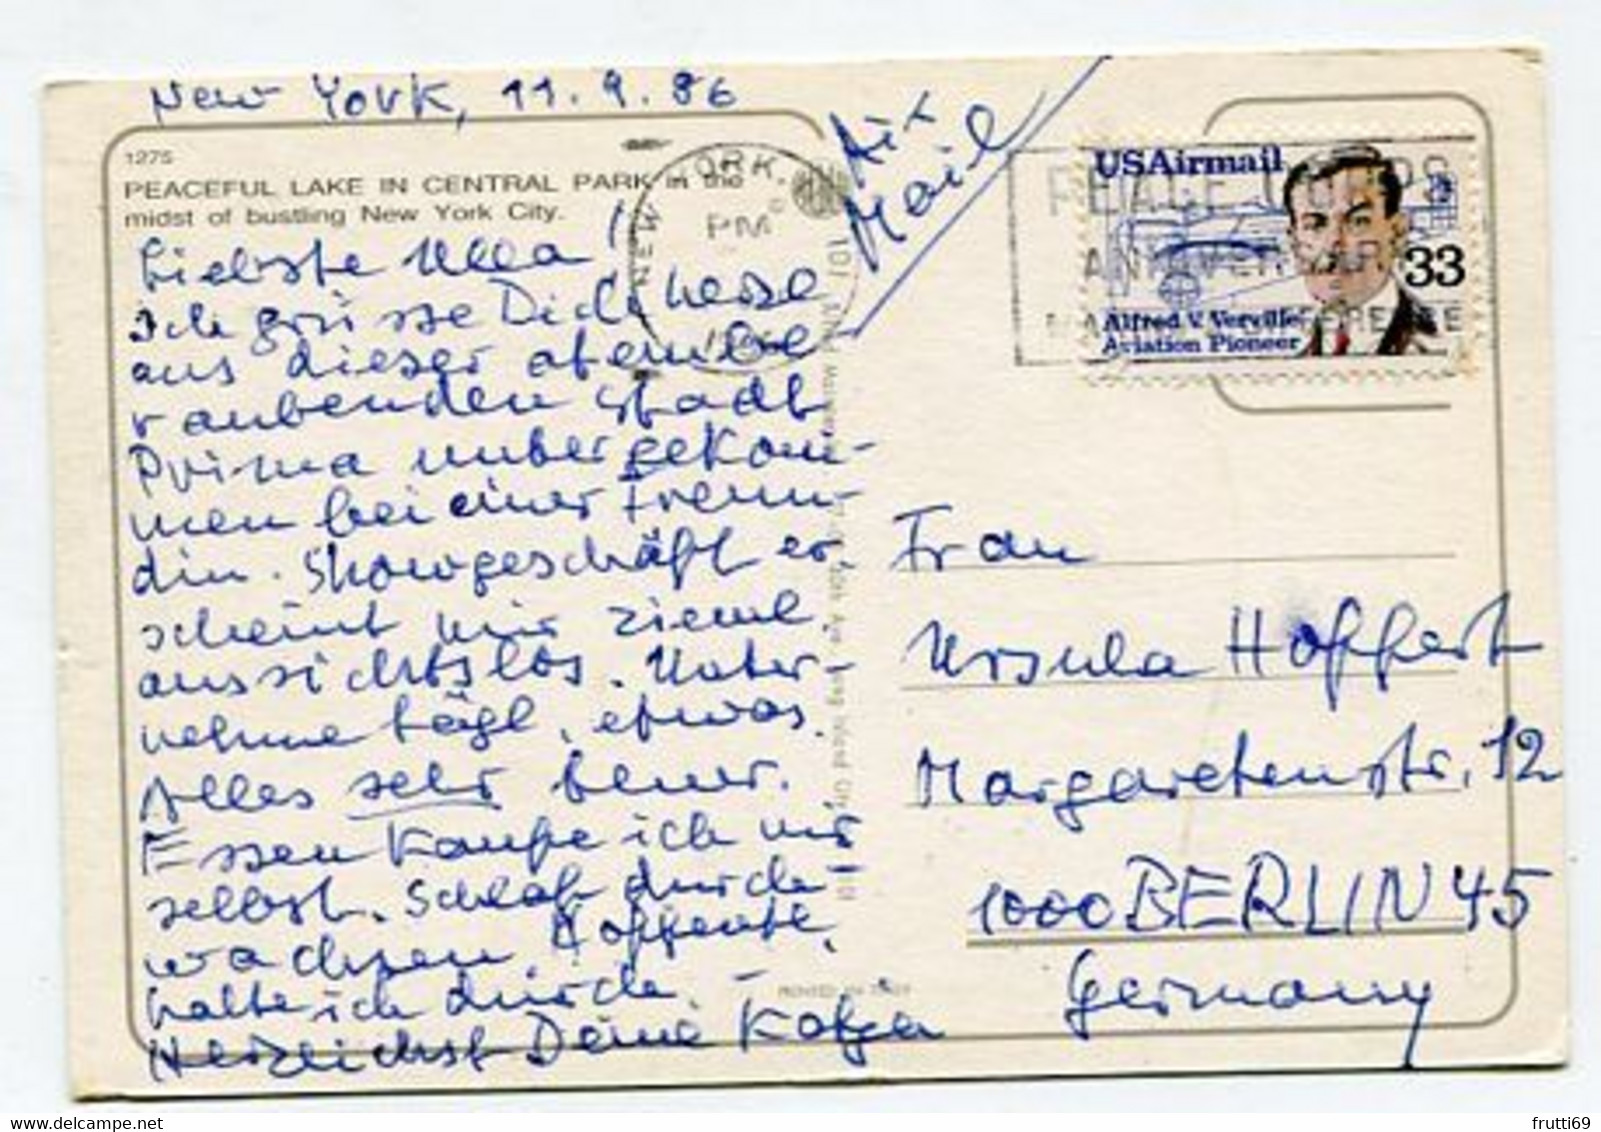 New York, 11.9.86
1275
PEACEFUL LAKE IN CENTRAL PARK in the
midst of bustling New York City.
Liebste Ulla!
Ich grüsse Dich
aus dieser atembe-
raubenden Stadt
Prima untergekom-
men bei einer Freun-
din. Showgeschäft er
scheint mir zieml.
aussichtslos. Unter-
nehme tägl. etwas.
Alles sehr teuer.
Essen kaufe ich mir
selbst. Schlaf durch-
wachsen. Hoffentl.
halte ich durch.
Herzlichst Deine
Air
Mail
NEW YORK,
PM
USAirmail
33
Alfred V. Verville
Aviation Pioneer
PEACE CORPS
ANNIVERSARY
PRINTED IN
Frau
Ursula Hoffert
Margaretenstr. 12
1000 BERLIN 45
Germany
frutti69